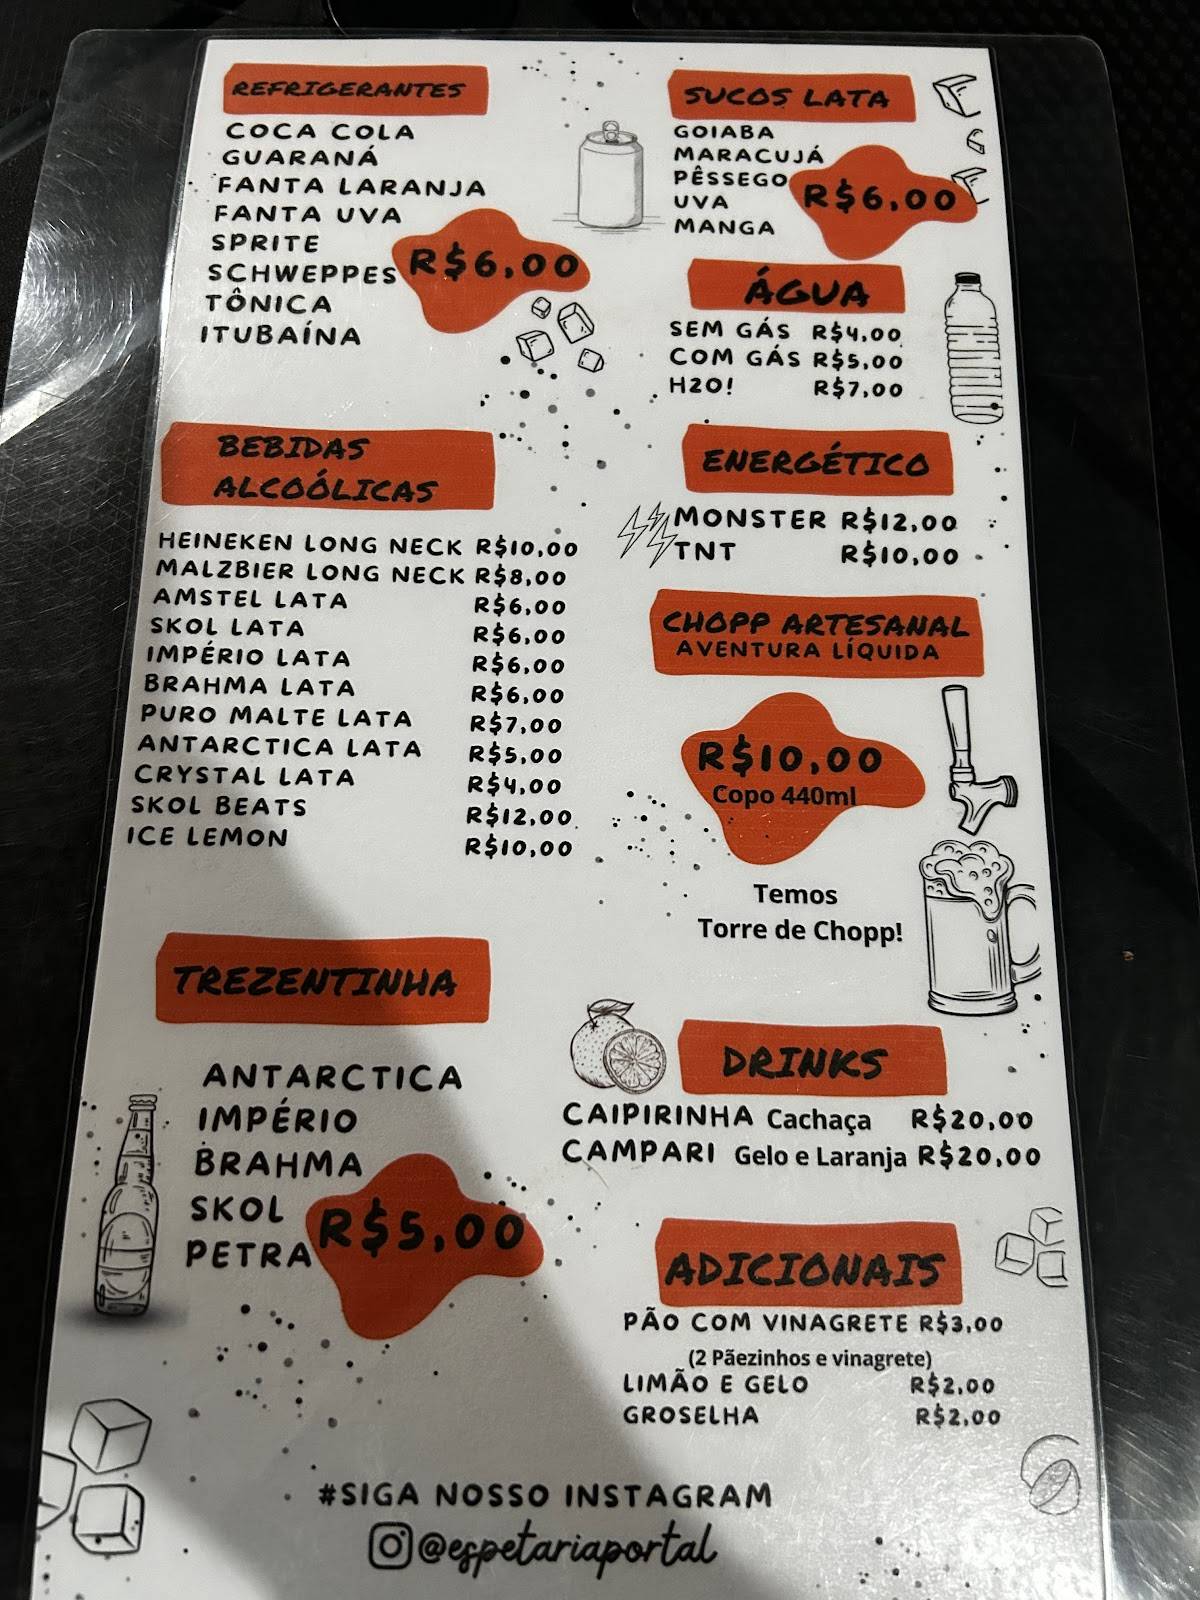 REFRIGERANTES
COCA COLA
GUARANÁ
FANTA LARANJA
FANTA UVA
SPRITE
SCHWEPPES
TÔNICA
ITUBAÍNA
R$6,00
SUCOS LATA
GOIABA
MARACUJÁ
PÊSSEGO
UVA
MANGA
R$6,00
ÁGUA
SEM GÁS R$4,00
COM GÁS R$5,00
H2O! R$7,00
BEBIDAS
ALCOÓLICAS
HEINEKEN LONG NECK R$10,00
MALZBIER LONG NECK R$8,00
AMSTEL LATA R$6,00
SKOL LATA R$6,00
IMPÉRIO LATA R$6,00
BRAHMA LATA R$6,00
PURO MALTE LATA R$7,00
ANTARCTICA LATA R$5,00
CRYSTAL LATA R$4,00
SKOL BEATS R$12,00
ICE LEMON R$10,00
ENERGÉTICO
MONSTER R$12,00
TNT R$10,00
CHOPP ARTESANAL
AVENTURA LÍQUIDA
R$10,00
Copo 440ml
Temos
Torre de Chopp!
TREZENTINHA
ANTARCTICA
IMPÉRIO
BRAHMA
SKOL
PETRA
R$5,00
DRINKS
CAIPIRINHA Cachaça R$20,00
CAMPARI Gelo e Laranja R$20,00
ADICIONAIS
PÃO COM VINAGRETE R$3,00
(2 Pãezinhos e vinagrete)
LIMÃO E GELO R$2,00
GROSELHA R$2,00
#SIGA NOSSO INSTAGRAM
@espetariaportal